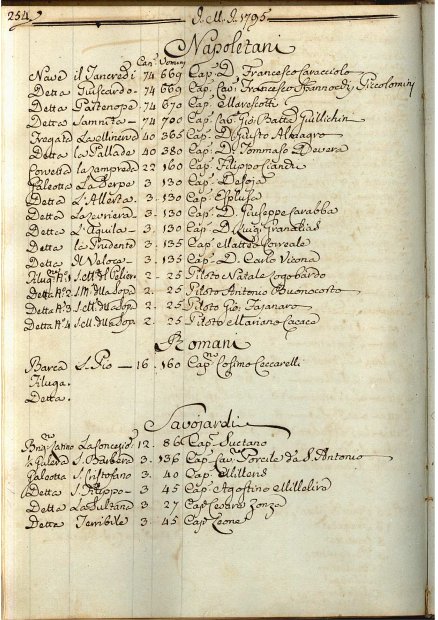 254. J. M. J. 1795
Napoletani
Can. Uomini
Nave il Tancredi 74 669 Cap. D. Francesco Caracciolo
Detta Guiscardo 74 669 Cap. Cav. Francesco Piccolomini
Detta Partenope 74 670 Cap. Marescotti
Detta Sannita 74 700 Cap. Cav. Gio: Batta Gullichini
Fregata La Minerva 40 365 Cap. D. Giusto Almagro
Detta la Pallade 40 380 Cap. D. Tommaso de Vera
Corvetta la Lampreda 22 160 Cap. Filippo Ciandi
Galeotta La Serpe 3 130 Cap. Desoja
Detta L'Allerta 3 130 Cap. Espluga
Detta La Levriera 3 130 Cap. D. Giuseppe Carabba
Detta L'Aquila 3 130 Cap. D. Luigi Granatias
Detta la Prudente 3 135 Cap. Matteo Correale
Detta il Veloce 3 135 Cap. D. Carlo Vicona
Filuga N: 1 2 25 Piloto Natale Logobardo
Detta N: 2 2 25 Piloto Antonio Buonocorto
Detta N: 3 2 25 Piloto Gio: Fasanaro
Detta N: 4 2 25 Piloto Mariano Cacace
Romani
Barca S. Pio 16 160 Cap. Cosimo Ceccarelli
Filuga.
Detta.
Savojardi
La Concezio 12 86 Cap. Suetano
S. Barbera 3 136 Cap. Cav. Porcile da S. Antonio
Galeotta S. Cristofano 3 40 Cap. Milleris
Detta S. Filippo 3 45 Cap. Agostino Millelire
Detta La Sultana 3 27 Cap. Cesare Zonza
Detta Terribile 3 45 Cap. Leone